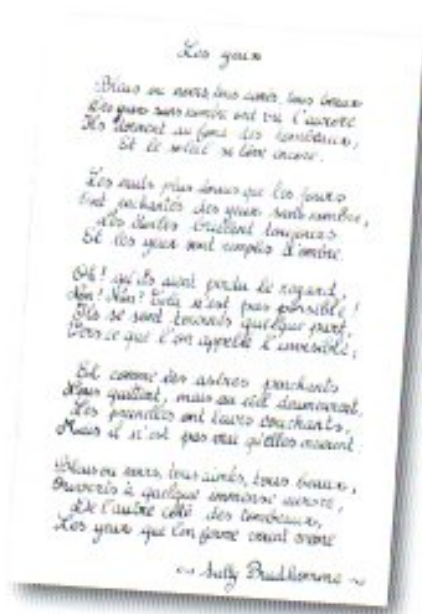 Les yeux
Bleus ou noirs, tous aimés, tous beaux
Des yeux sans nombre ont vu l'aurore
Ils dorment au fond des tombeaux,
Et le soleil se lève encore.
Les nuits plus douces que les jours
Ont enchanté des yeux sans nombre,
Les étoiles brillent toujours
Et les yeux sont remplis d'ombre.
Oh! qu'ils aient perdu le regard,
Non! Non! Cela n'est pas possible!
Ils se sont tournés quelque part,
Vers ce que l'on appelle l'invisible;
Et comme les astres penchants
Nous quittent, mais au ciel demeurent,
Les prunelles ont leurs couchants,
Mais il n'est pas vrai qu'elles meurent.
Bleus ou noirs, tous aimés, tous beaux,
Ouverts à quelque immense aurore,
De l'autre côté des tombeaux,
Les yeux que l'on ferme voient encore
Sully Prudhomme